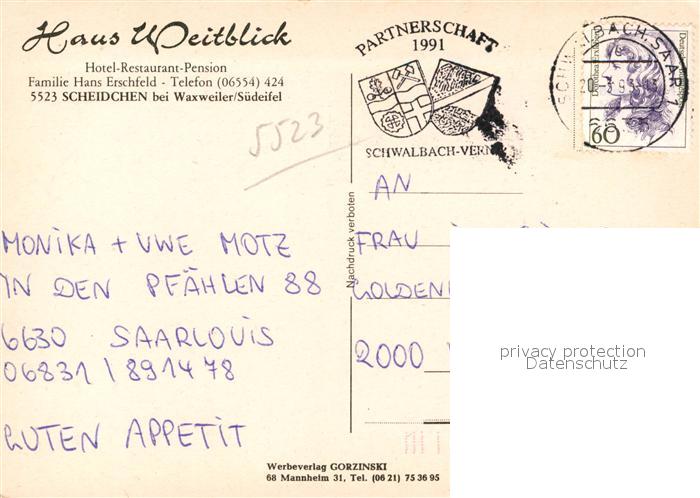 Haus Weitblick
Hotel-Restaurant-Pension
Familie Hans Erschfeld - Telefon (06554) 424
5523 SCHEIDCHEN bei Waxweiler/Südeifel
5523
PARTNERSCHAFT
1991
SCHWALBACH-VERN
SCHWALBACH, SAAR 1
60
Nachdruck verboten
AN
FRAU
GOLDEN
2000
MONIKA + UWE MOTZ
IN DEN PFÄHLEN 88
6630 SAARLOUIS
06831 / 891478
GUTEN APPETIT
privacy protection
Datenschutz
Werbeverlag GORZINSKI
68 Mannheim 31, Tel. (06 21) 75 36 95